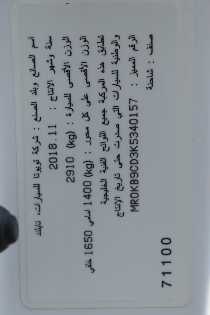 اسم الصانع وبلد الصنع : شركة تويوتا للسيارات، تايلاند
سنة وشهر الانتاج : 2018.11
الوزن الأقصى للسيارة : (kg) 2910
الوزن الأقصى على كل محور : (kg) 1400 أمامي 1650 خلفي
تطابق هذه المركبة جميع اللوائح الفنية الخليجية
والوطنية للسيارات التي صدرت حتى تاريخ الانتاج
الرقم المميز : MR0KB9CD3K5340157
صنف : شاحنة
71100